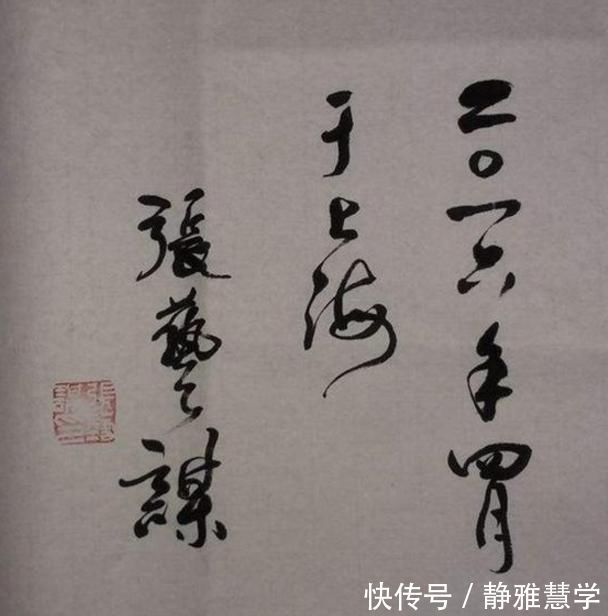 二〇一六年四月
于上海
張藝謀
快传号 / 静雅慧学